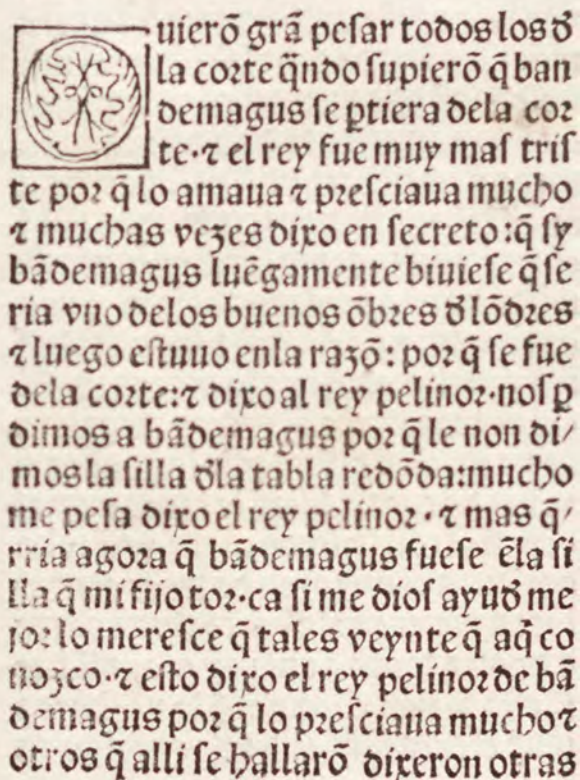 Ouierō grā pesar todos los đ
la corte q̄ndo supierō q̄ ban
demagus se ꝑtiera dela cor
te·⁊ el rey fue muy mas tris
te por q̄ lo amaua ⁊ presciaua mucho
⁊ muchas vezes dixo en secreto:q̄ sy
bādemagus luēgamente biuiese q̄ se
ria vno delos buenos ōbres đ lōdres
⁊ luego estuuo enla razō: por q̄ se fue
dela corte:⁊ dixo al rey pelinor·nos ꝑ
dimos a bādemagus por q̄ le non di/
mos la silla đla tabla redōda:mucho
me pesa dixo el rey pelinor·⁊ mas q̄/
rria agora q̄ bādemagus fuese ēla si
lla q̄ mi fijo tor·ca si me dios ayuđ me
jor lo meresce q̄ tales veynte q̄ aq̄ co
nozco·⁊ esto dixo el rey pelinor de bā
demagus por q̄ lo presciaua mucho ⁊
otros q̄ alli se hallarō dixeron otras